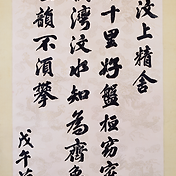 汶上精舍
十里好盤桓窈窕
灣汶水知為齊魯
韻不須攀
戊午